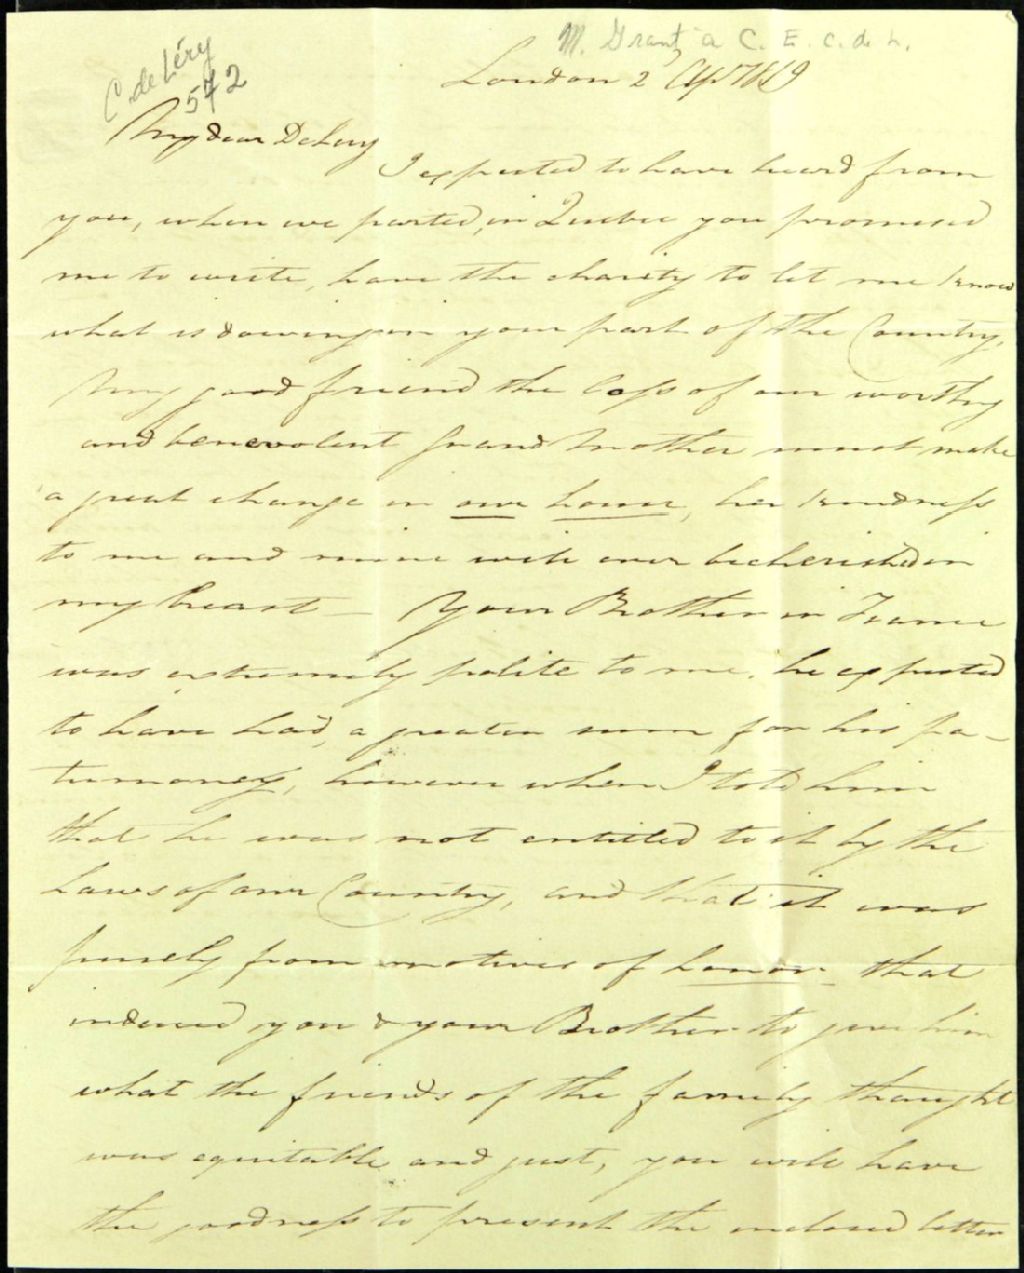 M. Grant à C. E. C. de L.
C. de Léry
572
London 2 Apr 1819
My dear DeLery
I expected to have heard from
you, when we parted, in Quebec you promised
me to write, have the charity to let me know
what is doing in your part of the Country,
My good friend the loss of our worthy
and benevolent Grand Mother must make
a great change in our house, her kindness
to me and mine will ever be cherished in
my breast — Your Brother in France
was extremely polite to me. he expected
to have had, a greater sum for his pa-
trimoney, however when I told him
that he was not entitled to it by the
Laws of our Country, and that it was
purely from motives of honor that
induced you & your Brother to give him
what the friends of the family thought
was equitable and just, you will have
the goodness to present the inclosed letter